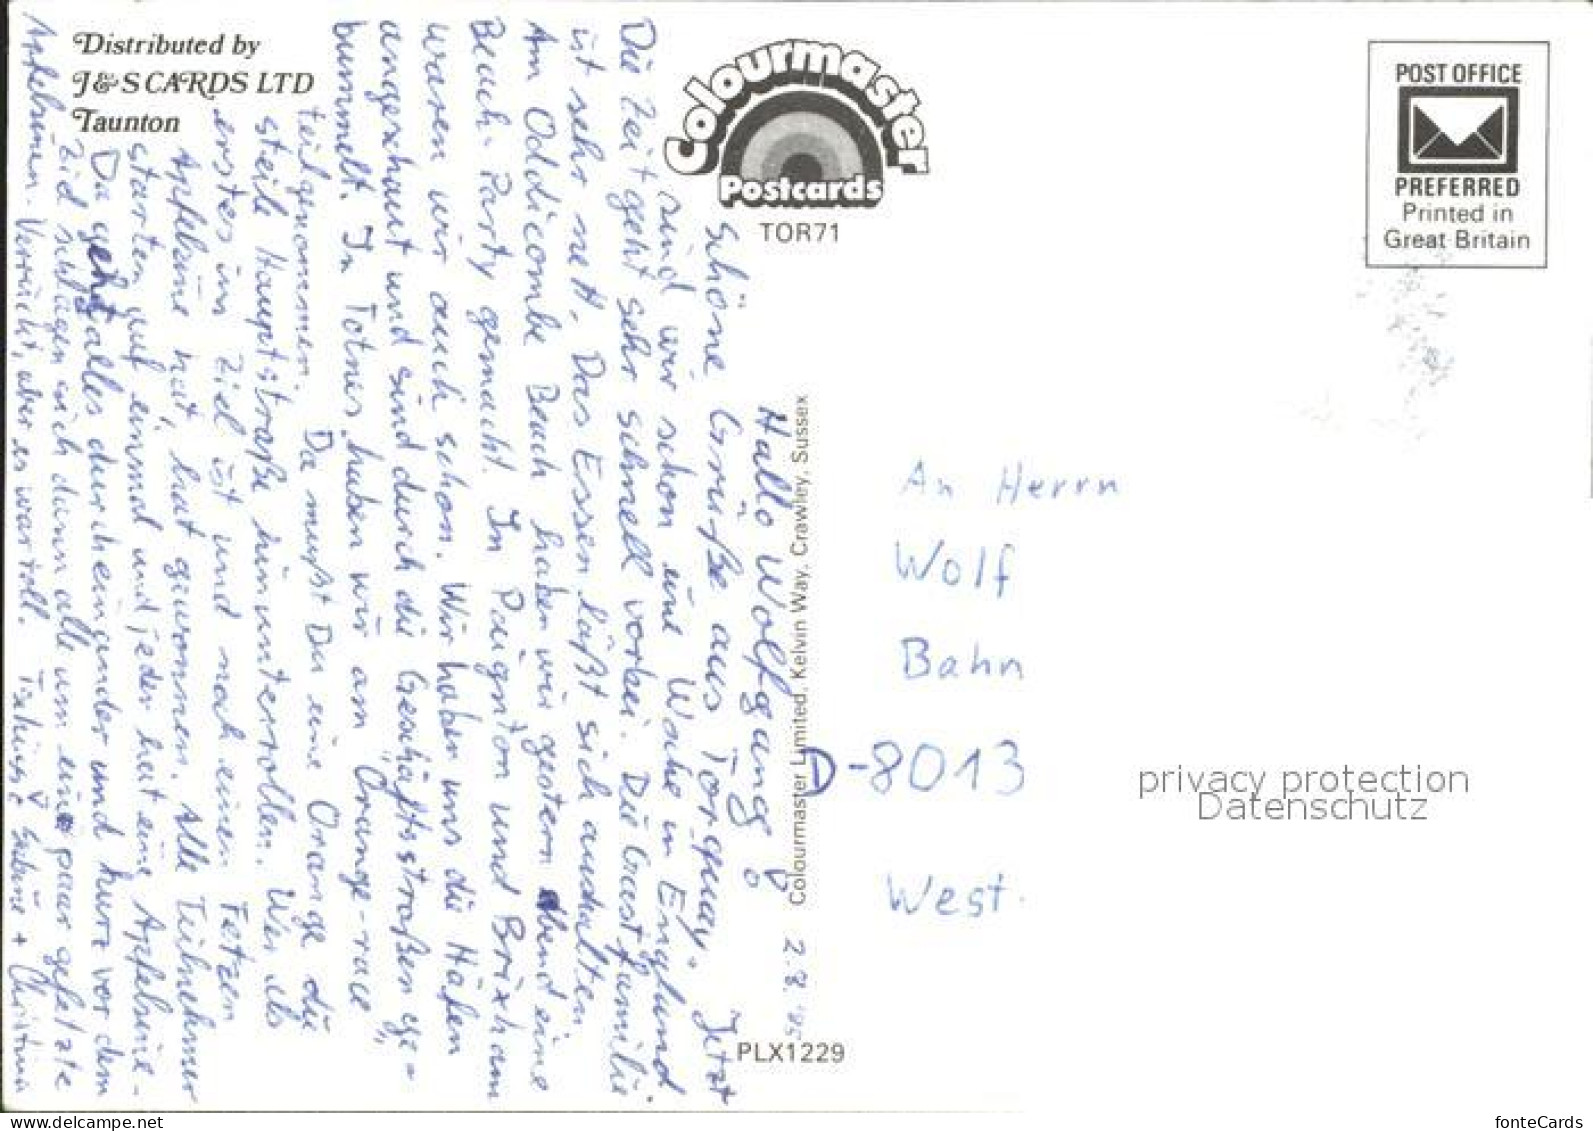 Distributed by
J&S CARDS LTD
Taunton
Colourmaster
Postcards
TOR71
POST OFFICE
PREFERRED
Printed in
Great Britain
Colourmaster Limited, Kelvin Way, Crawley, Sussex
PLX1229
2.8.'85
Hallo Wolfgang!
schöne Grüße aus Torquay. Jetzt
sind wir schon eine Woche in England.
Die Zeit geht sehr schnell vorbei. Die Gastfamilie
ist sehr nett. Das Essen läßt sich aushalten.
Am Oddicombe Beach haben wir gestern Abend eine
Beach-Party gemacht. In Paignton und Brixham
waren wir auch schon. Wir haben uns die Häfen
angeschaut und sind durch die Geschäftsstraßen ge-
bummelt. In Totnes haben wir am "Orange-race"
teilgenommen. Da mußt Du eine Orange die
steile Hauptstraße hinunterrollen. Wer als
erster im Ziel ist und noch einen Fetzen
Apfelsine hat, hat gewonnen. Alle Teilnehmer
starten auf einmal und jeder hat eine Apfelsine.
Da geht alles durcheinander und kurz vor dem
Ziel schlagen sich dann alle um ein paar gefetzte
Apfelsinen. Verrückt, aber es war toll. Tschüß Sabine + Christina
An Herrn
Wolf
Bahn
D-8013
West-
privacy protection
Datenschutz
delcampe.net
fonteCards